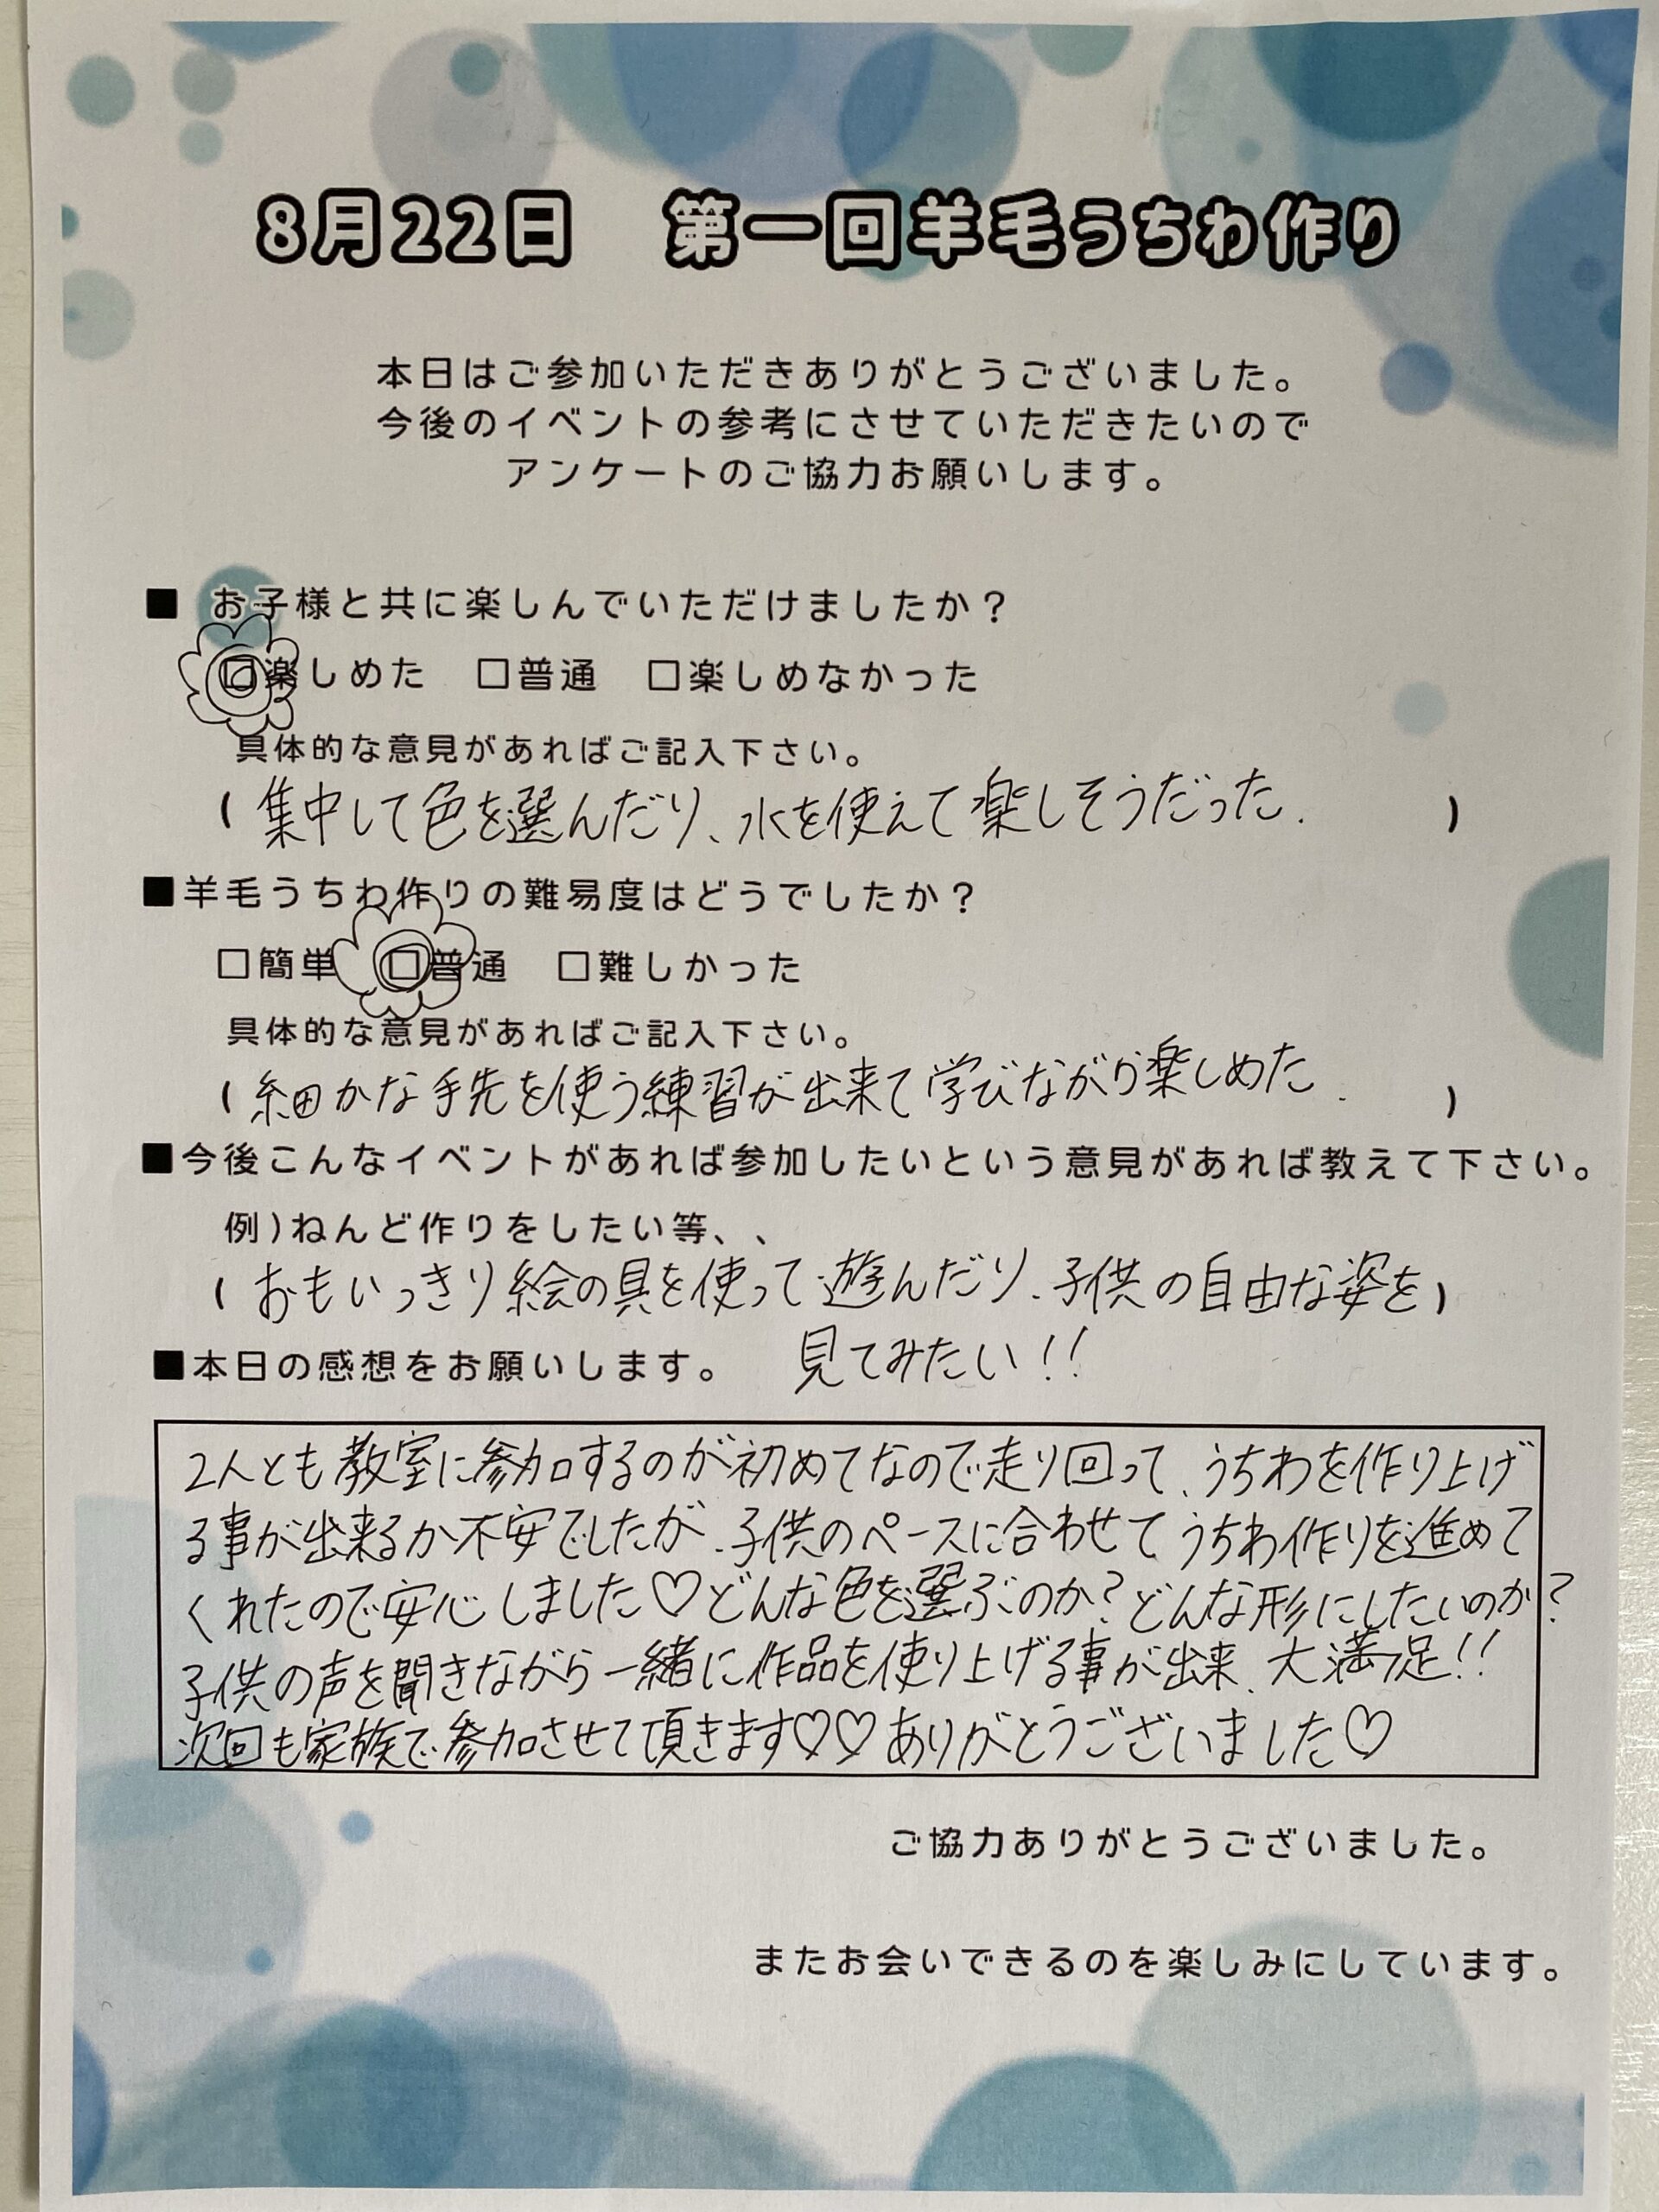 8月22日　第一回羊毛うちわ作り
本日はご参加いただきありがとうございました。
今後のイベントの参考にさせていただきたいので
アンケートのご協力お願いします。
■ お子様と共に楽しんでいただけましたか？
□楽しめた　□普通　□楽しめなかった
具体的な意見があればご記入下さい。
( 集中して色を選んだり、水を使えて楽しそうだった. )
■羊毛うちわ作りの難易度はどうでしたか？
□簡単　□普通　□難しかった
具体的な意見があればご記入下さい。
( 細かな手先を使う練習が出来て学びながら楽しめた. )
■今後こんなイベントがあれば参加したいという意見があれば教えて下さい。
例)ねんど作りをしたい等、、
( おもいっきり絵の具を使って遊んだり、子供の自由な姿を )
見てみたい!!
■本日の感想をお願いします。
2人とも教室に参加するのが初めてなので走り回って、うちわを作り上げ
る事が出来るか不安でしたが、子供のペースに合わせてうちわ作りを進めて
くれたので安心しました♡どんな色を選ぶのか?どんな形にしたいのか?
子供の声を聞きながら一緒に作品を使り上げる事が出来、大満足!!
次回も家族で参加させて頂きます♡♡ありがとうございました♡
ご協力ありがとうございました。
またお会いできるのを楽しみにしています。